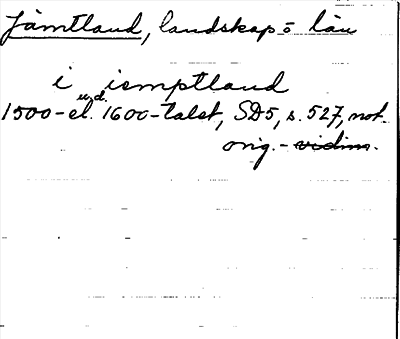 Jämtland, landskap o län
i ismptland
und.
1500- el. 1600-talet, SD5, s. 527, not.
orig. - vidim.